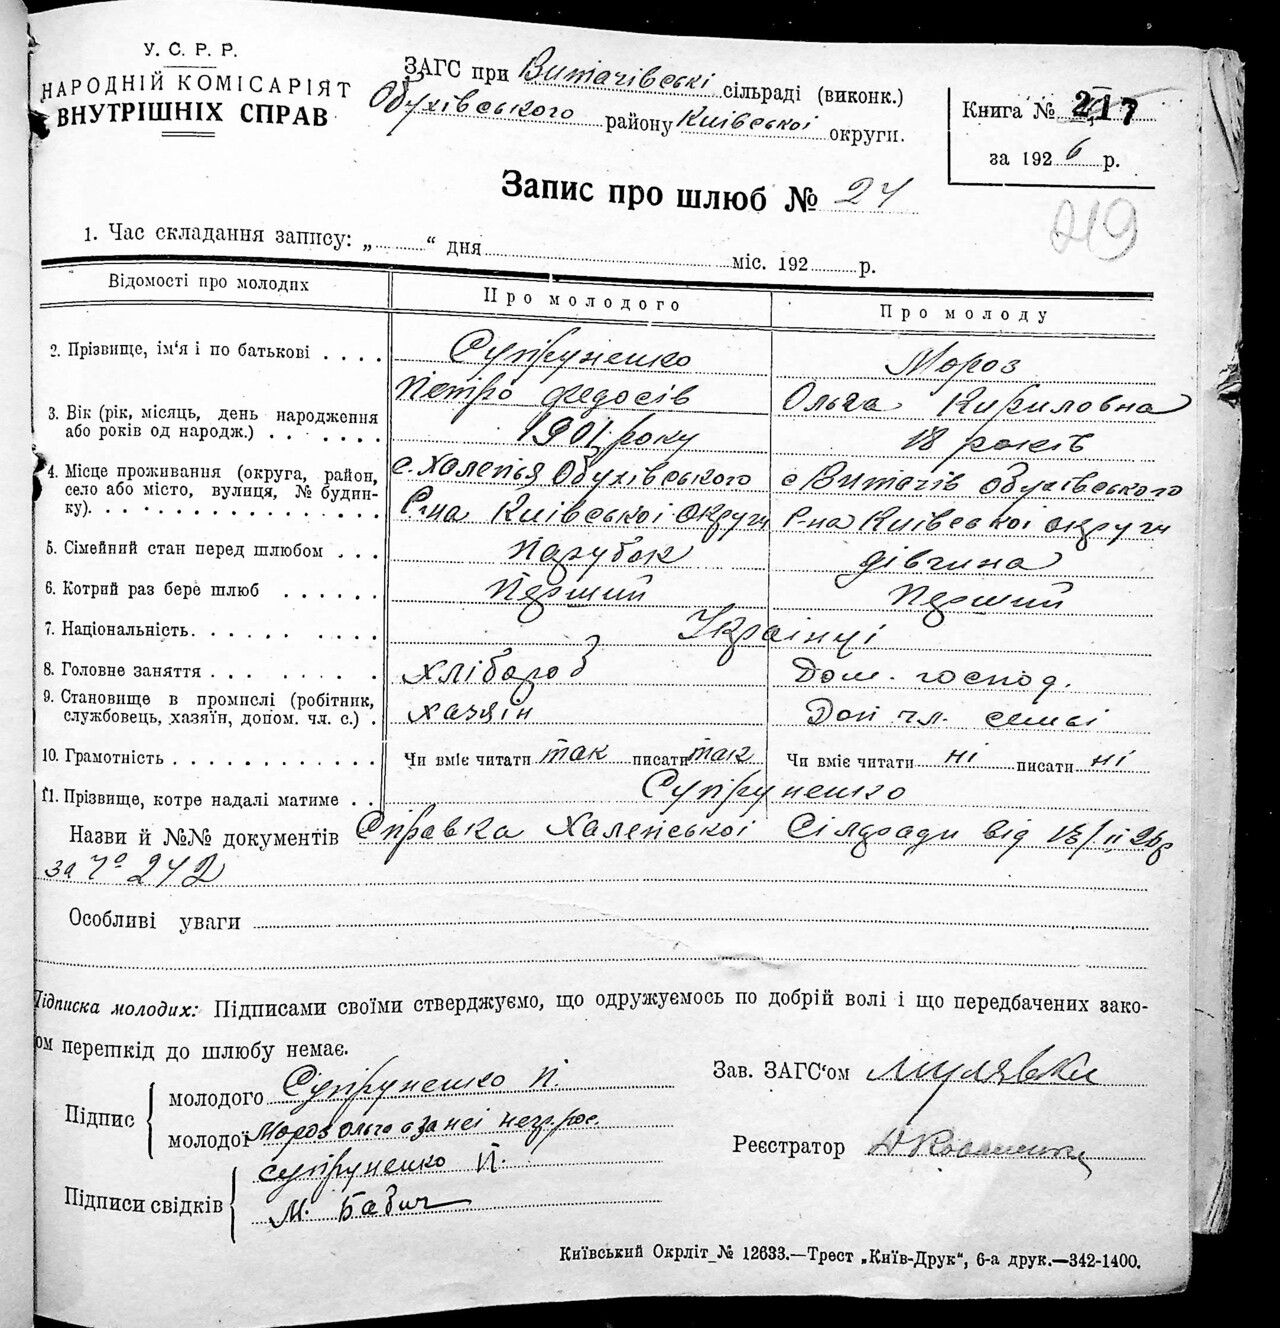 У. С. Р. Р.
НАРОДНІЙ КОМІСАРІЯТ
ВНУТРІШНІХ СПРАВ
ЗАГС при Витачівські сільраді (виконк.)
Обухівського району Київської округи.
Книга № 217
за 1926 р.
Запис про шлюб № 24
219
1. Час складання запису: „ “ дня міс. 192 р.
Відомості про молодих Про молодого Про молоду
2. Прізвище, ім'я і по батькові . . . . Супруненко Мороз
Петро Федосів Ольга Кириловна
3. Вік (рік, місяць, день народження
або років од народж.) . . . . . . . 1901 року 18 років
4. Місце проживання (округа, район, с. Халепья Обухівського с Витачів Обухівського
село або місто, вулиця, № будин-
ку). . . . . . . . . . . . . . . . Р-на Київської округи Р-на Київської округи
5. Сімейний стан перед шлюбом . . . Парубок дівчина
6. Котрий раз бере шлюб . . . . . . Перший Перший
7. Національність. . . . . . . . . . Українці
8. Головне заняття . . . . . . . . . Хлібороб Дом. господ.
9. Становище в промислі (робітник,
службовець, хазяїн, допом. чл. с.) . хазяін Доп чл. семьі
10. Грамотність . . . . . . . . . . . . Чи вміє читати так писати так Чи вміє читати ні писати ні
11. Прізвище, котре надалі матиме . . Супруненко
Назви й №№ документів Справка Халепської Сілдради від 13/II 26р
за № 242
Особливі уваги
Підписка молодих: Підписами своїми стверджуємо, що одружуємось по добрій волі і що передбачених зако-
ом перешкід до шлюбу немає.
Підпис
молодого Супруненко П.
молодої Мороз Ольга а за неі негр. рос.
Зав. ЗАГС'ом Мулявка
Реєстратор
Підписи свідків
Супруненко Й.
М. Бабич
Київський Окрліт № 12633.—Трест „Київ-Друк“, 6-а друк.—342-1400.